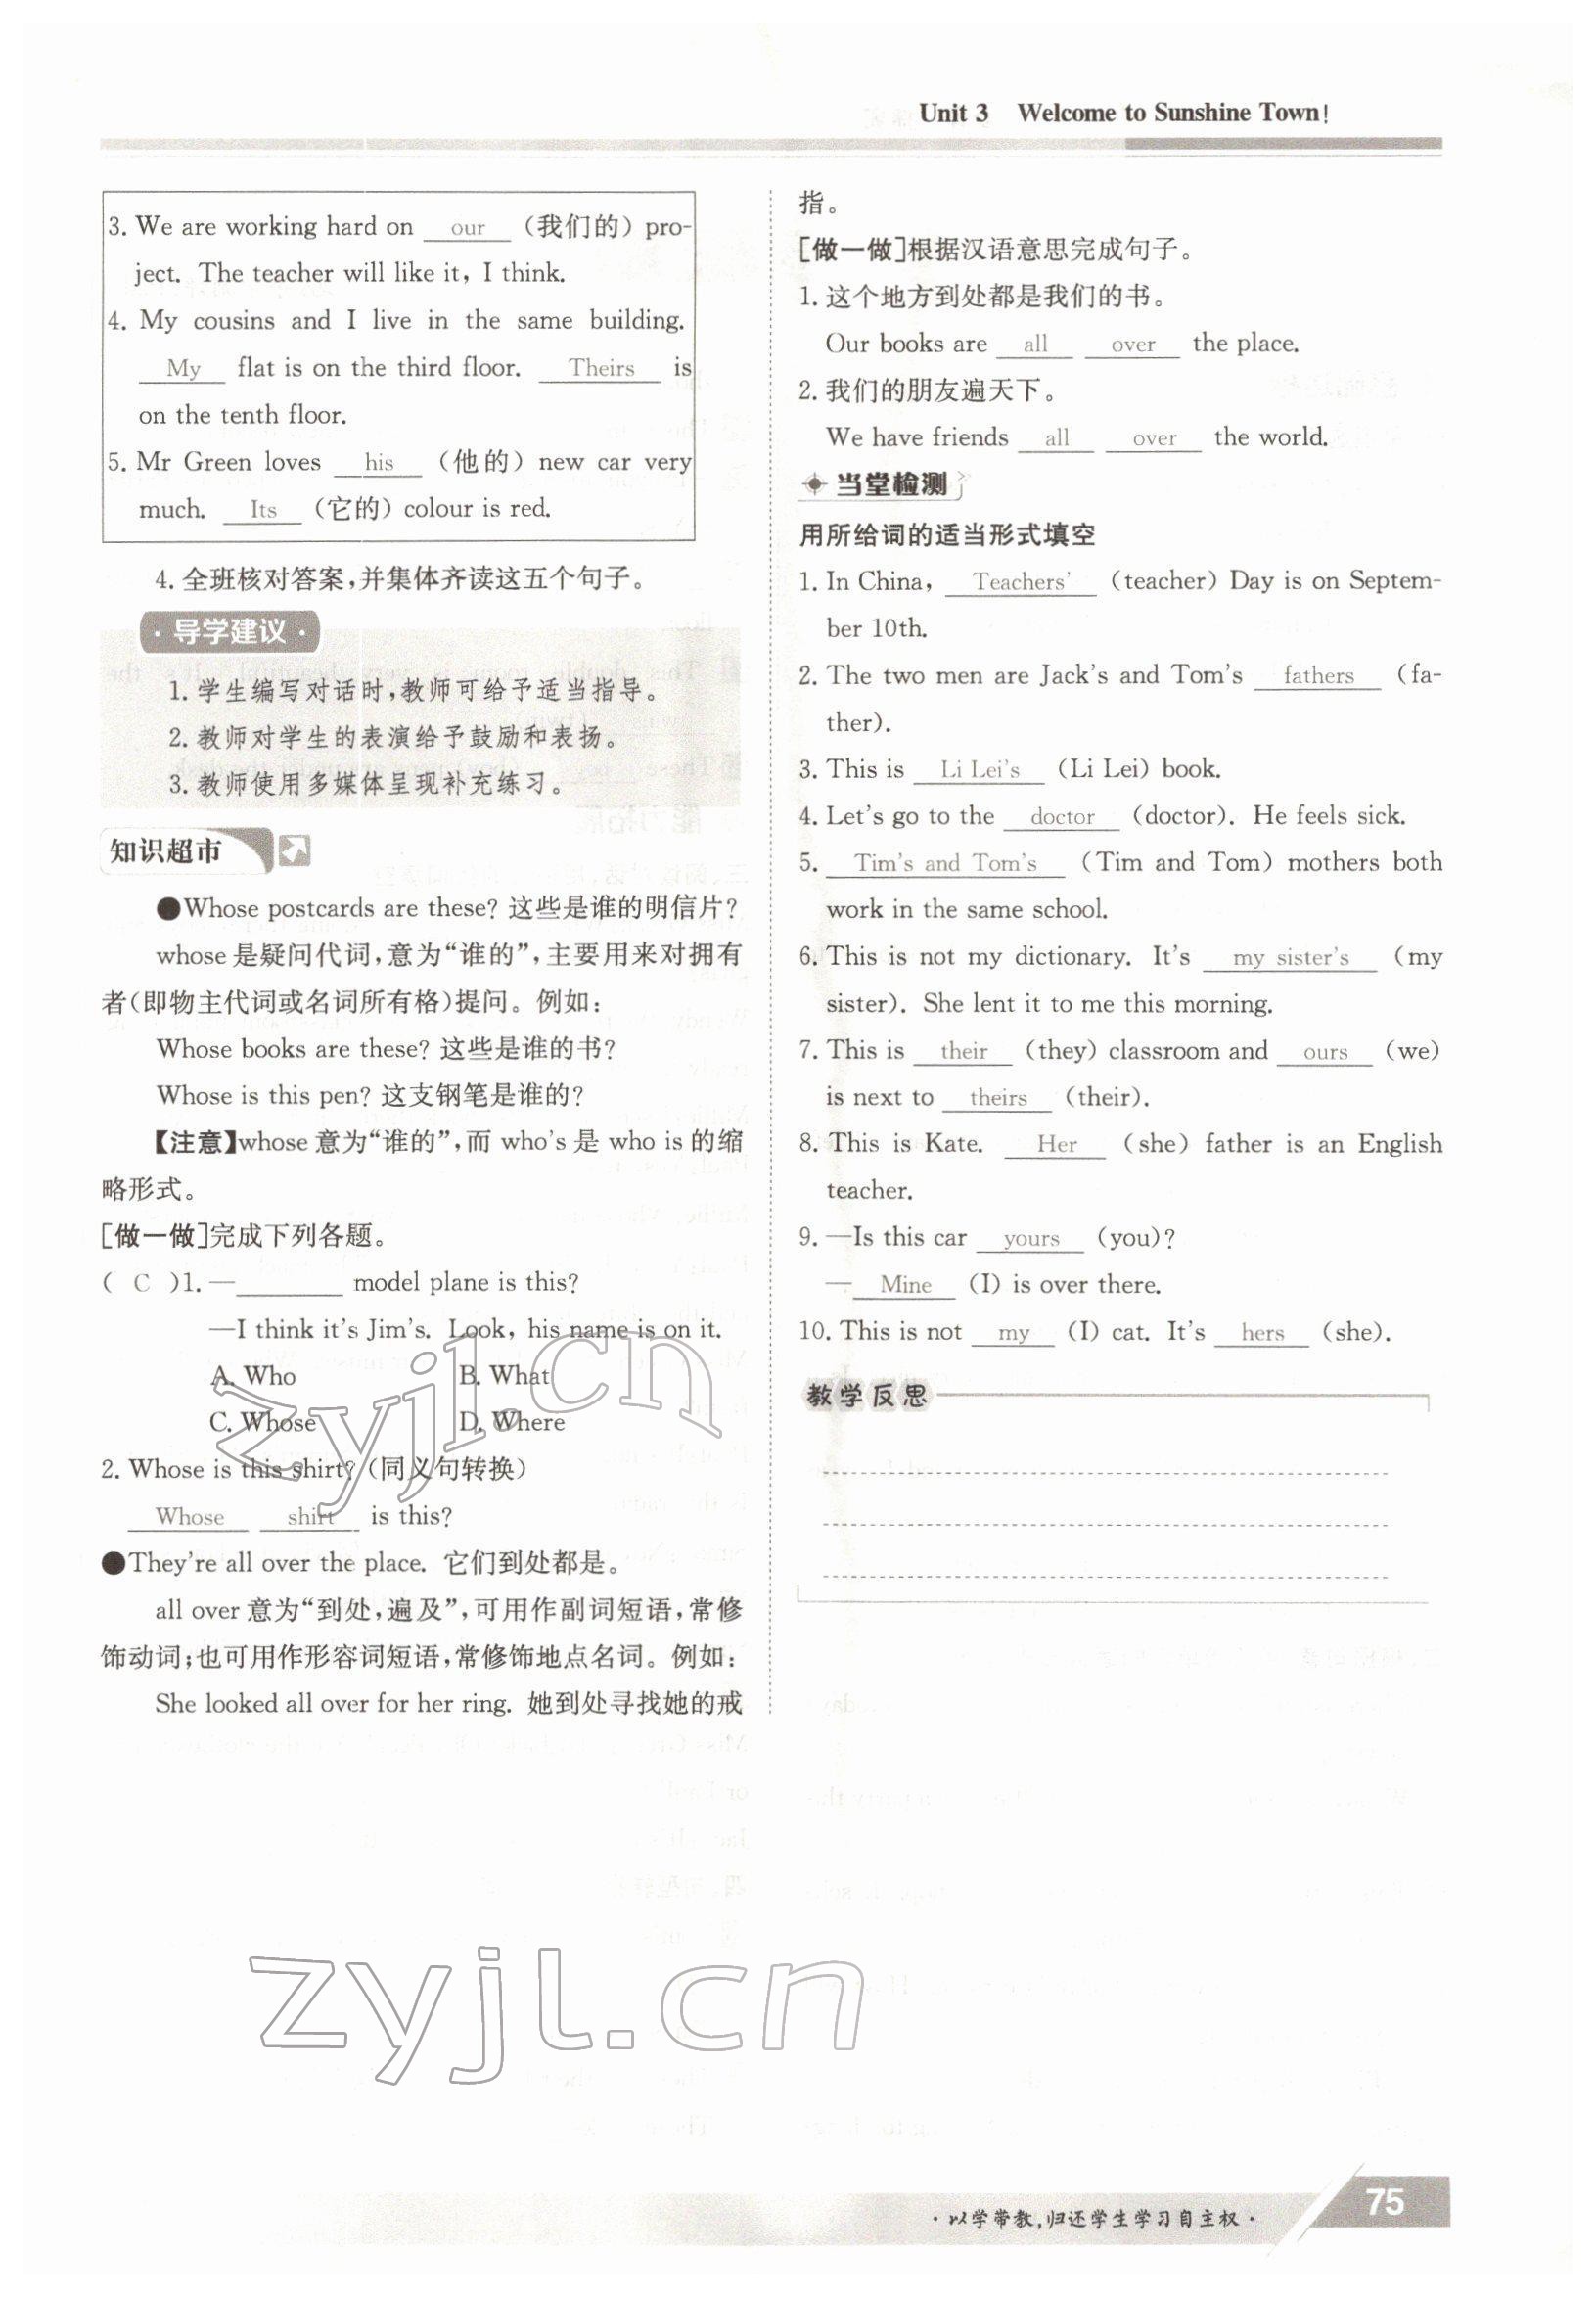 Unit 3 Welcome to Sunshine Town!
3. We are working hard on our (我们的) pro-
ject. The teacher will like it, I think.
4. My cousins and I live in the same building.
My flat is on the third floor. Theirs is
on the tenth floor.
5. Mr Green loves his (他的) new car very
much. Its (它的) colour is red.
4. 全班核对答案,并集体齐读这五个句子。
·导学建议·
1. 学生编写对话时,教师可给予适当指导。
2. 教师对学生的表演给予鼓励和表扬。
3. 教师使用多媒体呈现补充练习。
知识超市
●Whose postcards are these? 这些是谁的明信片?
whose 是疑问代词,意为“谁的”,主要用来对拥有
者(即物主代词或名词所有格)提问。例如:
Whose books are these? 这些是谁的书?
Whose is this pen? 这支钢笔是谁的?
【注意】whose 意为“谁的”,而 who's 是 who is 的缩
略形式。
[做一做]完成下列各题。
( C )1. —________ model plane is this?
—I think it's Jim's. Look, his name is on it.
A. Who B. What
C. Whose D. Where
2. Whose is this shirt? (同义句转换)
Whose shirt is this?
●They're all over the place. 它们到处都是。
all over 意为“到处,遍及”,可用作副词短语,常修
饰动词;也可用作形容词短语,常修饰地点名词。例如:
She looked all over for her ring. 她到处寻找她的戒
指。
[做一做]根据汉语意思完成句子。
1. 这个地方到处都是我们的书。
Our books are all over the place.
2. 我们的朋友遍天下。
We have friends all over the world.
当堂检测
用所给词的适当形式填空
1. In China, Teachers' (teacher) Day is on Septem-
ber 10th.
2. The two men are Jack's and Tom's fathers (fa-
ther).
3. This is Li Lei's (Li Lei) book.
4. Let's go to the doctor (doctor). He feels sick.
5. Tim's and Tom's (Tim and Tom) mothers both
work in the same school.
6. This is not my dictionary. It's my sister's (my
sister). She lent it to me this morning.
7. This is their (they) classroom and ours (we)
is next to theirs (their).
8. This is Kate. Her (she) father is an English
teacher.
9. —Is this car yours (you)?
— Mine (I) is over there.
10. This is not my (I) cat. It's hers (she).
教学反思
zyjl.cn
zyjl.cn
·以学带教,归还学生学习自主权·
75